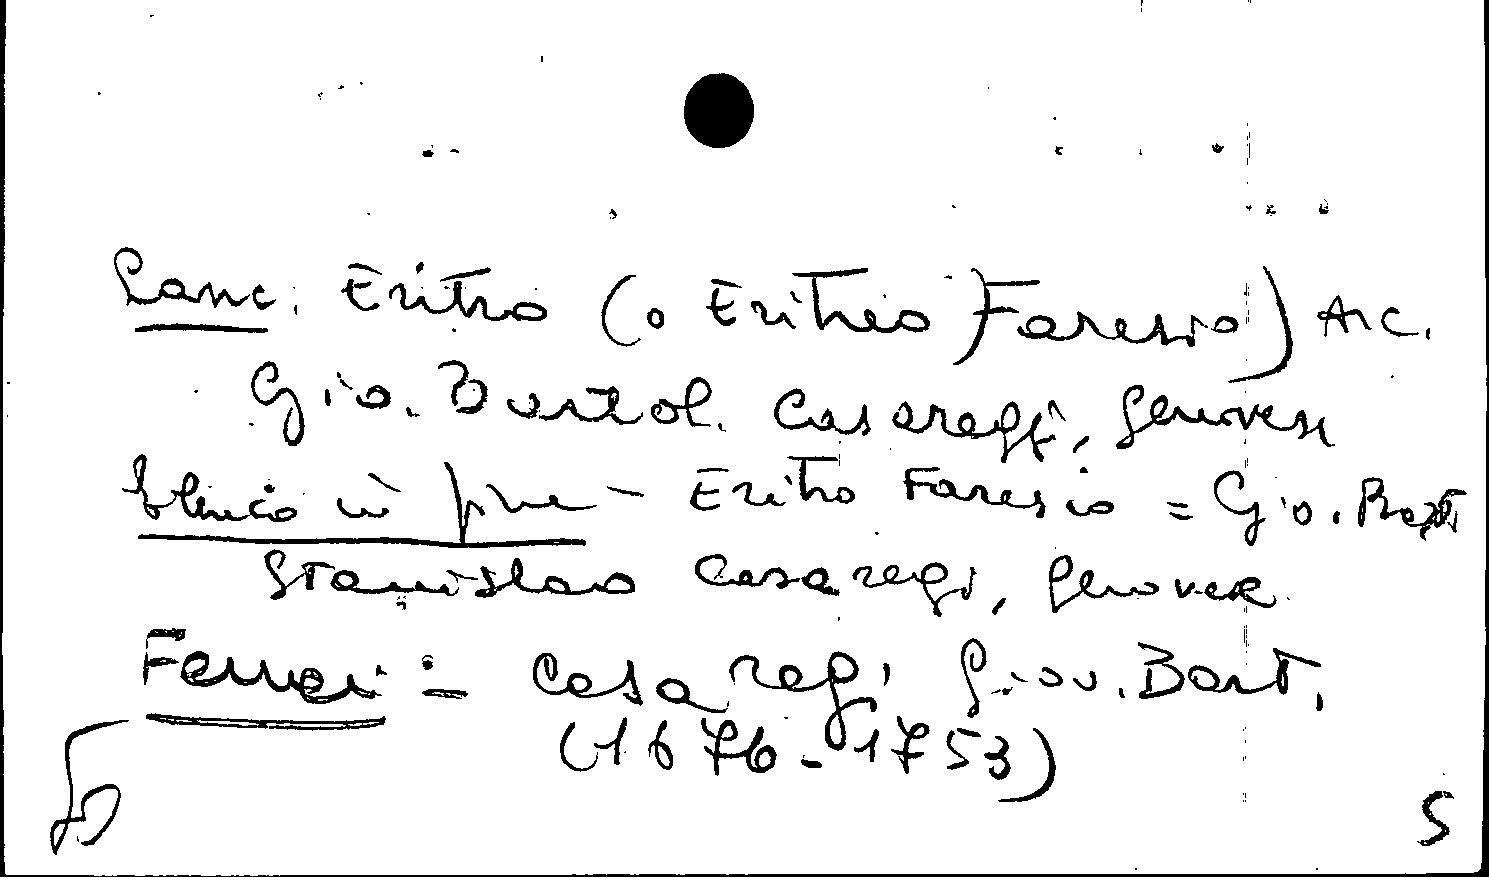 Lanc. Eritro (o Eritreo Faresio) Arc.
Gio. Bartol. Casaregi, Genovese
Elenco in fine - Eritro Faresio = Gio. Batt.
Stanislao Casaregi, Genovese
Ferrari: - Casaregi Giov. Bart.
(1676-1753)
S